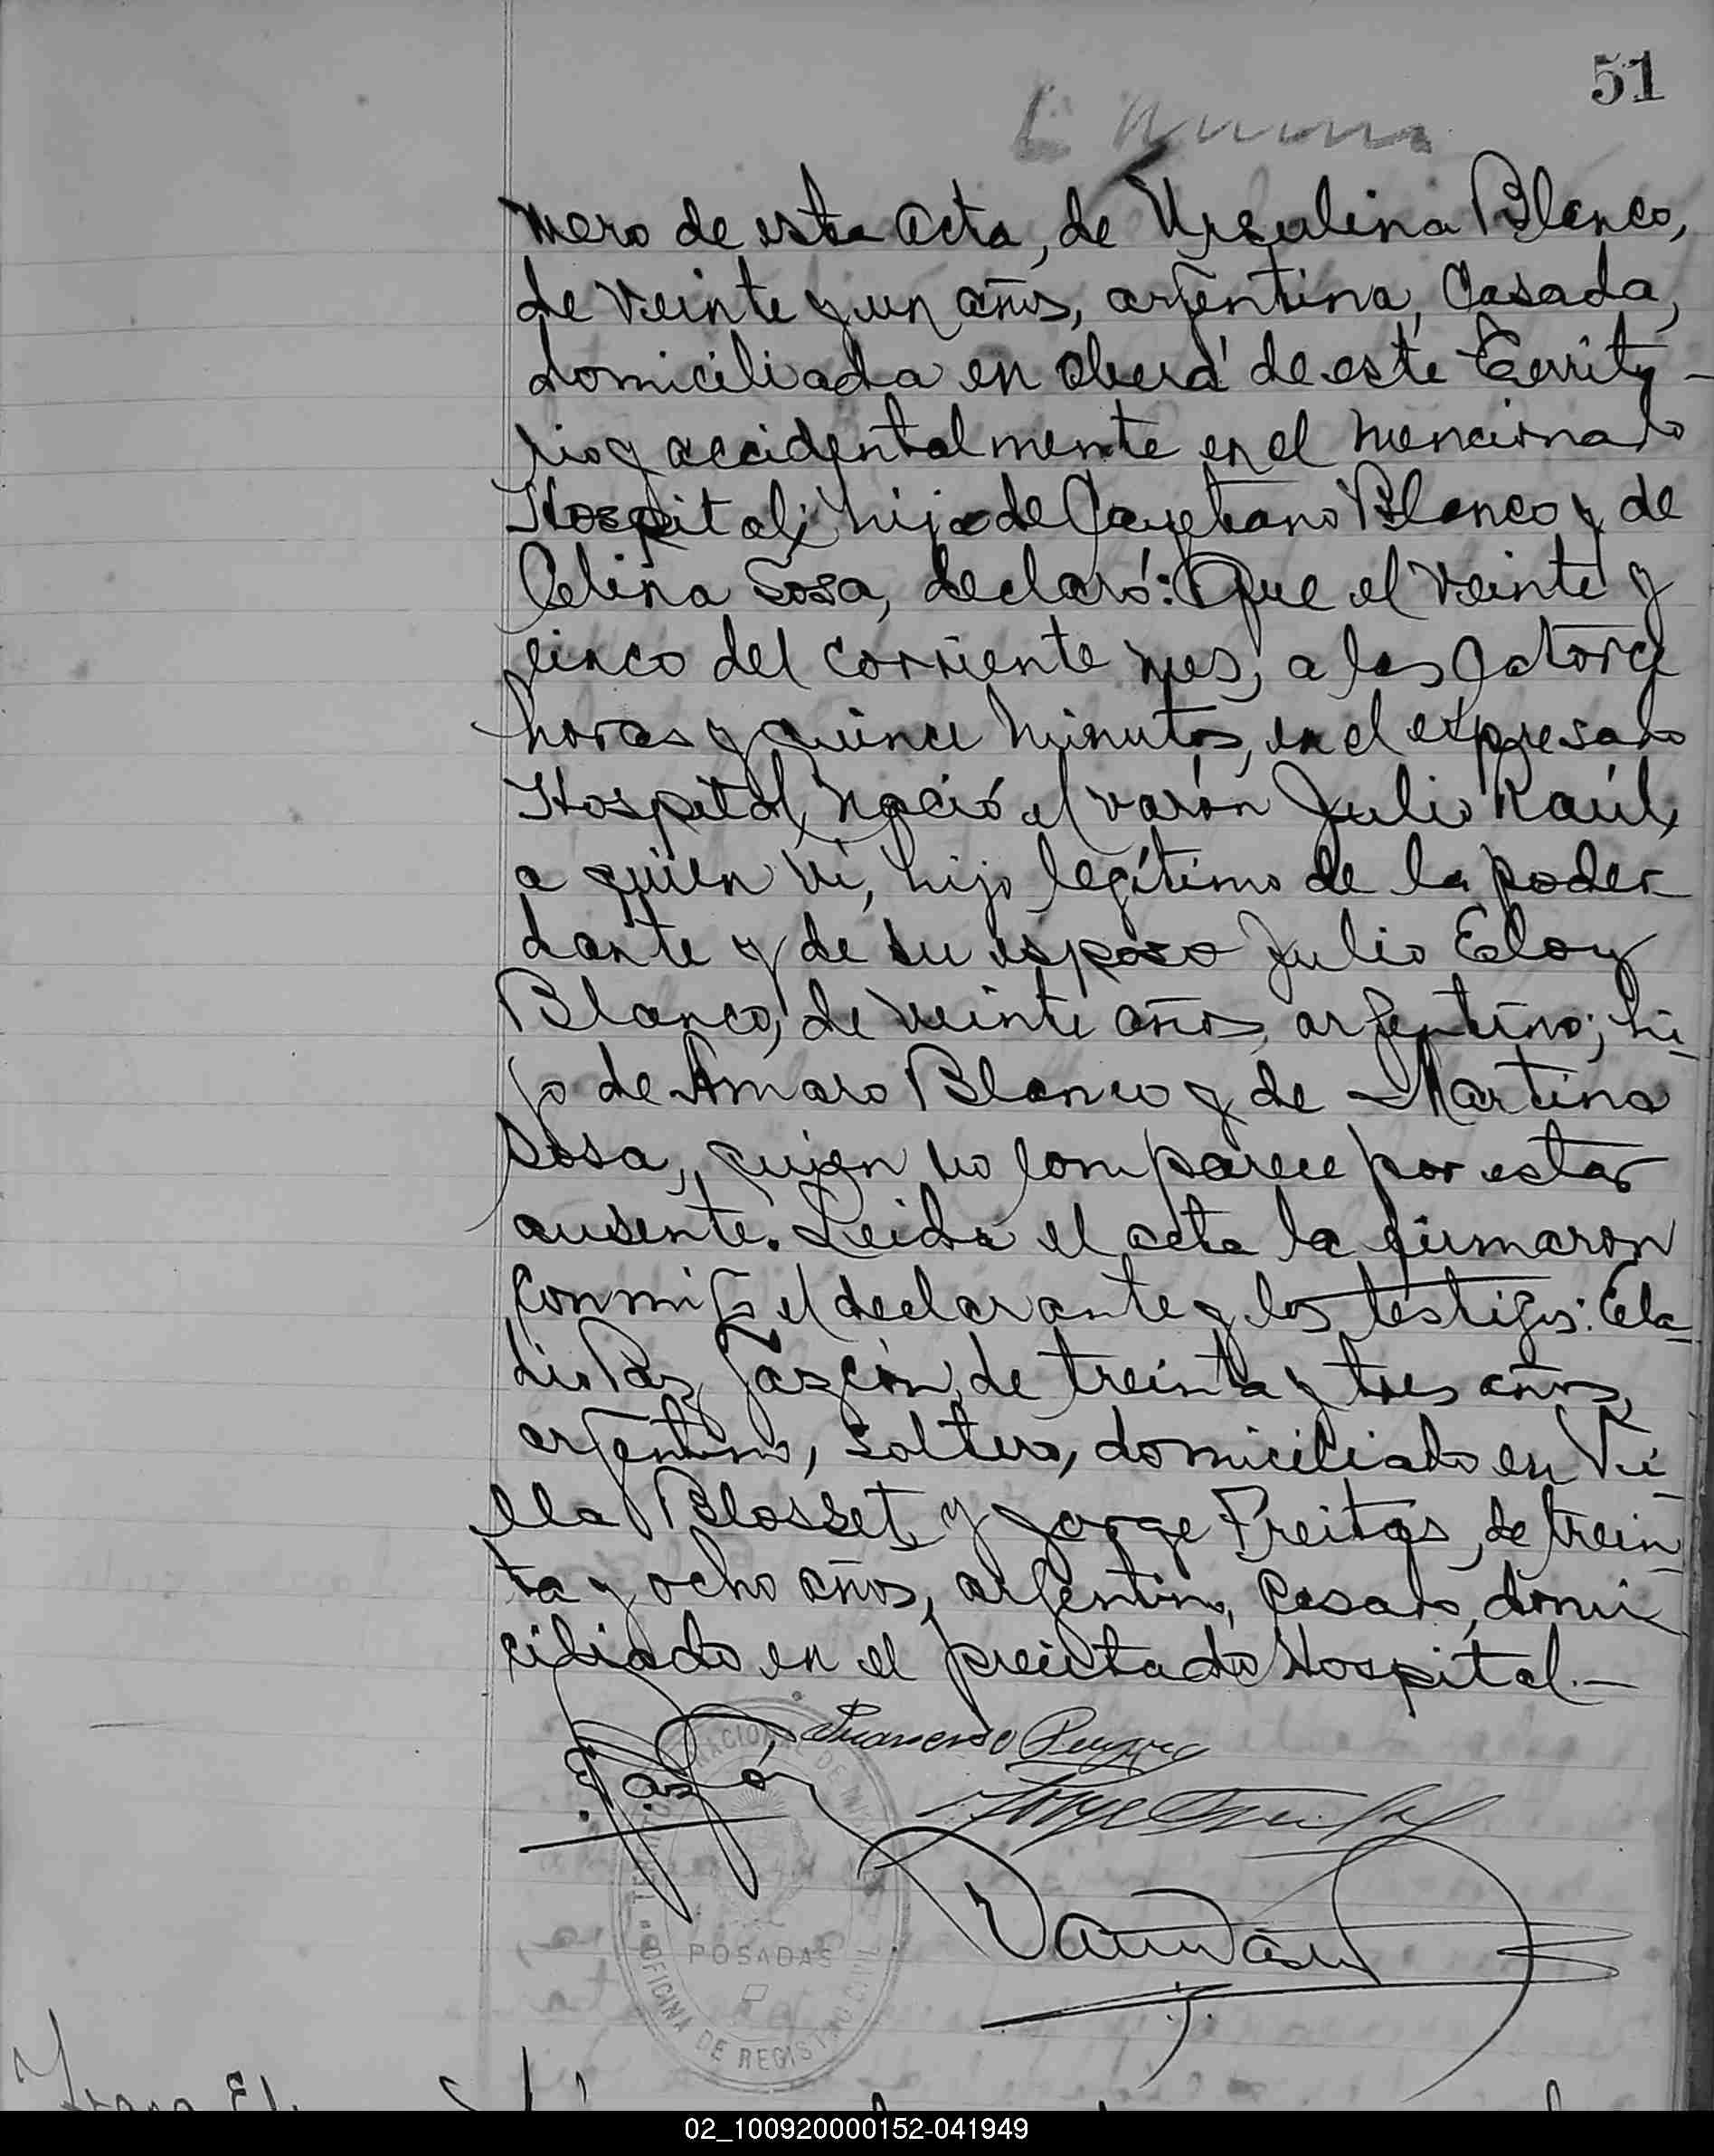 51
mero de esta acta, de Ursulina Blanco,
de veinte y un años, argentina, Casada,
domiciliada en Oberá de este Territo-
rio y accidentalmente en el mencionado
Hospital; hija de Cayetano Blanco y de
Celina Sosa, declaró: Que el veinte y
cinco del corriente mes, a las Catorce
horas y quince minutos, en el expresado
Hospital, nació el varón Julio Raúl,
a quien vi, hijo legítimo de la poder-
dante y de su esposo Julio Eloy
Blanco, de veinte años, argentino; hi-
jo de Amaro Blanco y de Martina
Sosa, quien no comparece por estar
ausente. Leida el acta la firmaron
conmigo el declarante y los testigos: Ela-
dio Paz Gazcón, de treinta y tres años,
argentino, soltero, domiciliado en Vi-
lla Blosset y Jorge Freitas, de trein-
ta y ocho años, argentino, casado, domi-
ciliado en el precitado Hospital.—
Jorge Freitas
POSADAS
OFICINA DE REGISTRO CIVIL
02_100920000152-041949